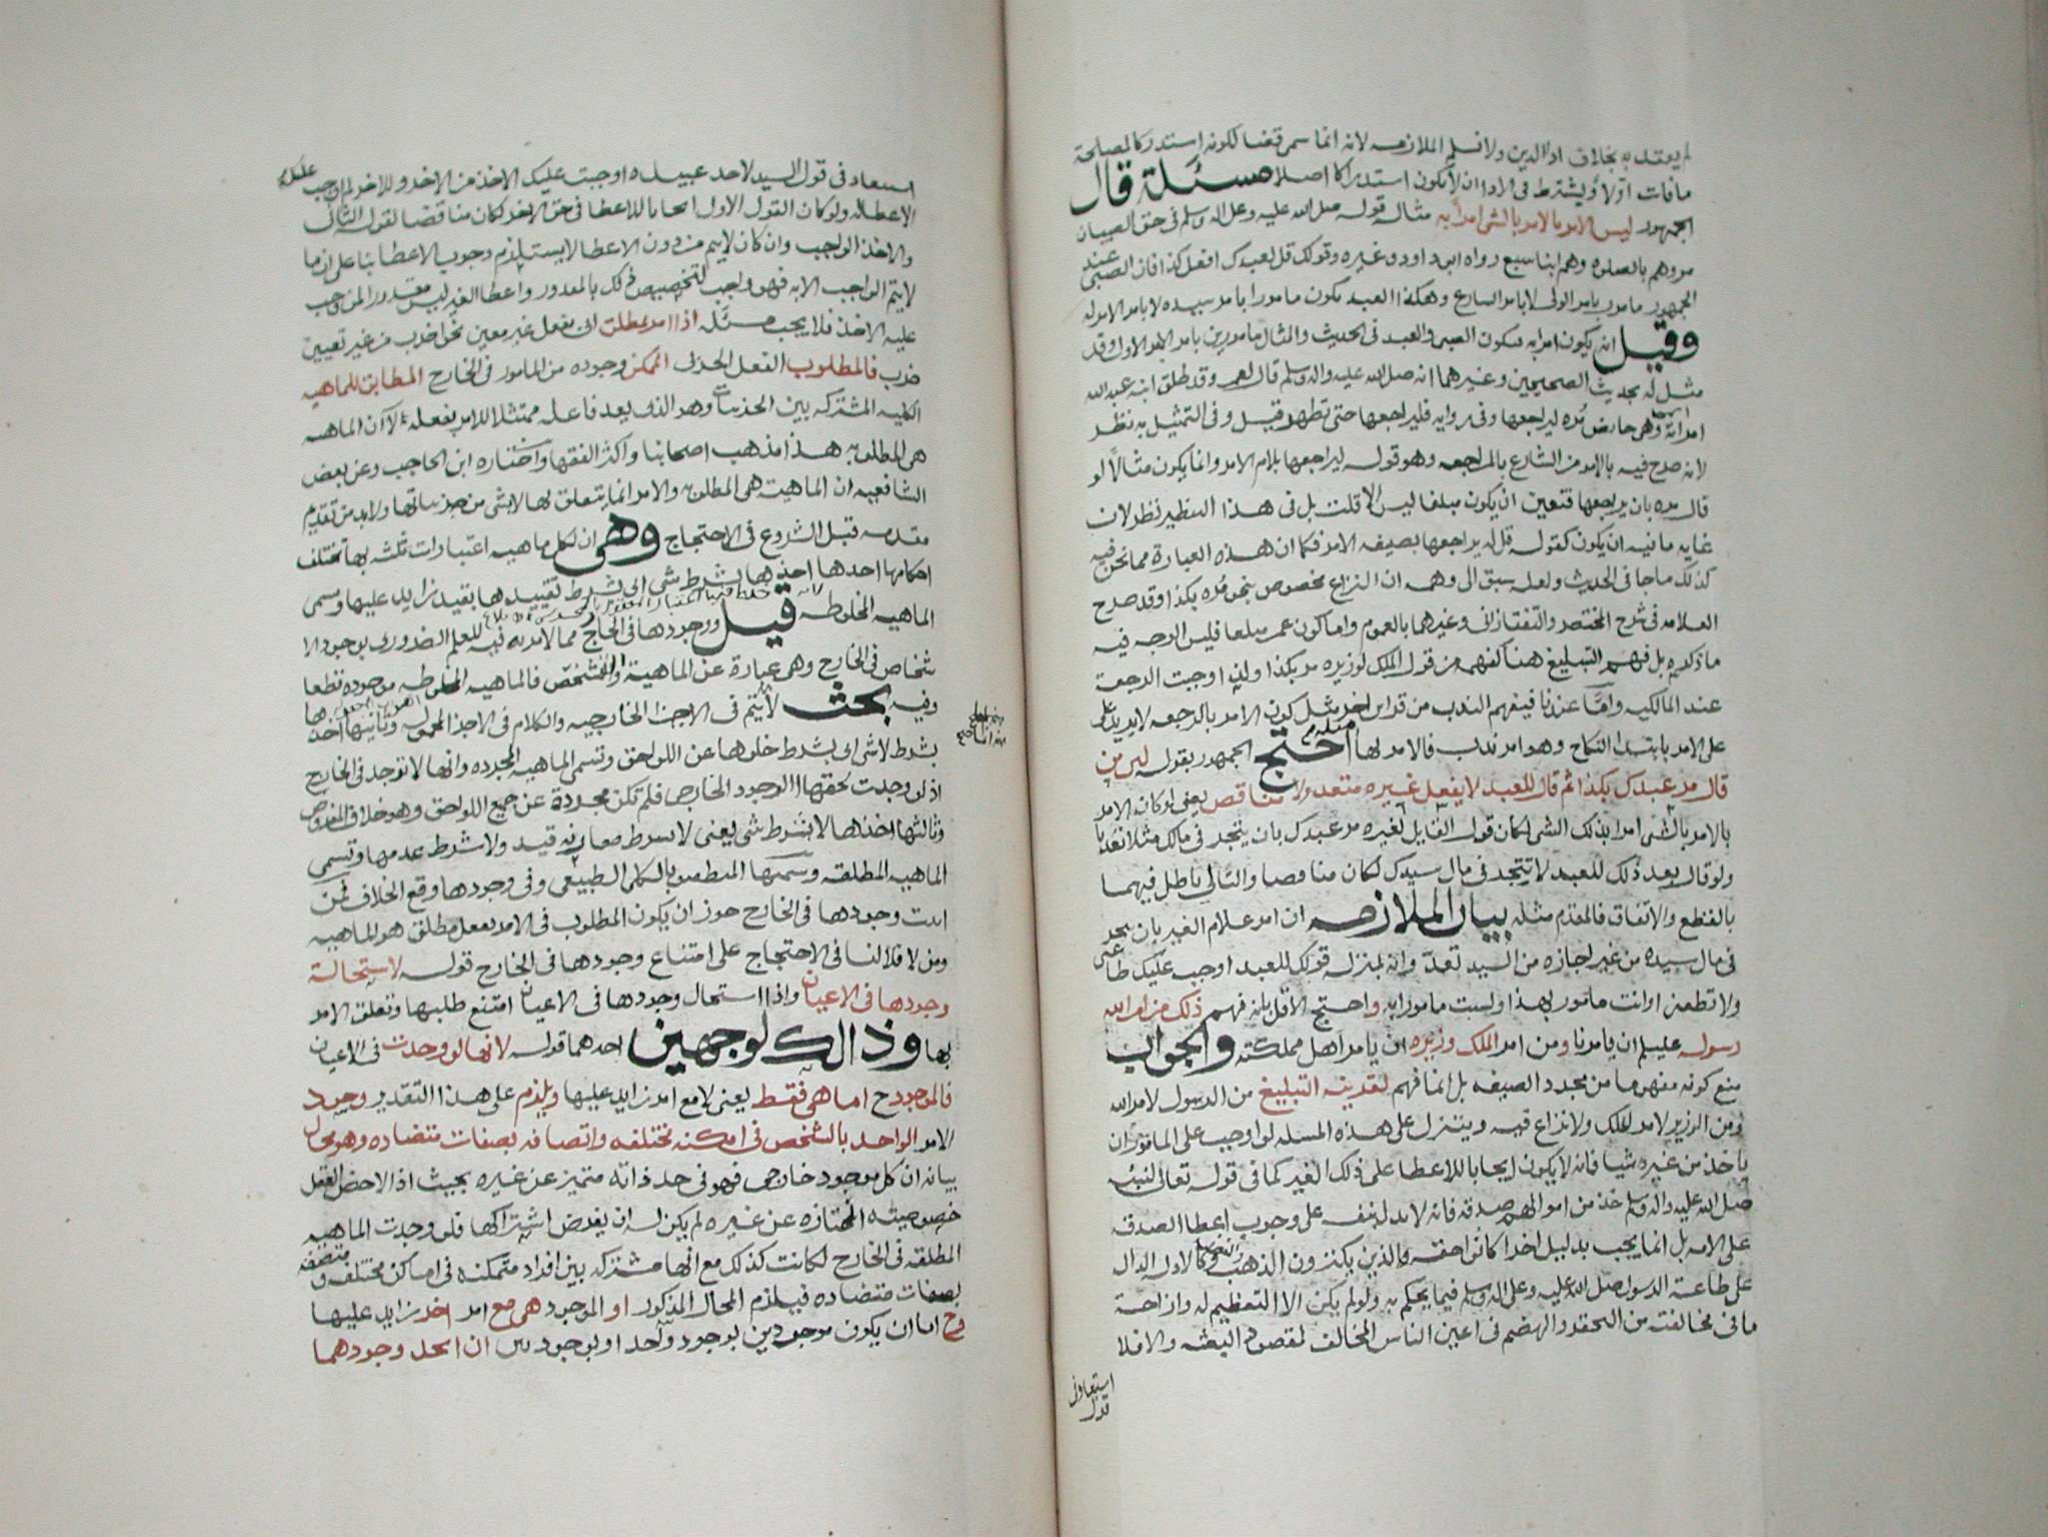 لم يعتد به بخلاف ادا الدين ولا نسلم الملازمه لانه انما سمى قضا لكونه استدراكا لمصلحة
ما فات اولا ويشترط فى الادا ان لا يكون استدراكا اصلا مسئلة قال
الجمهور ليس الامر بالامر بالشى امرا به مثاله قوله صلى الله عليه وعلى اله وسلم فى حق الصبيان
مروهم بالصلوه وهم ابنا سبع رواه ابو داود وغيره وقولك قل لعبدك افعل كذا فان الصبى عند
الجمهور مامور بامر الولى لا بامر الشارع وهكذا العبد يكون مامورا بامر سيده لا بامر الامر له
وقيل انه يكون امرا به فيكون الصبى والعبد فى الحديث والمثال مامورين بامر الامر الاول وقد
مثل له بحديث الصحيحين وغيرهما انه صلى الله عليه واله وسلم قال لعمر وقد طلق ابنه عبد الله
امراته وهى حايض مره ليراجعها وفى روايه فليراجعها حتى تطهر قيل وفى التمثيل به نظر
لانه صرح فيه بالامر من الشارع بالمراجعه وهو قوله ليراجعها بلام الامر وانما يكون مثالا لو
قال مره بان يراجعها فتعين ان يكون مبلغا ليس الا قلت بل فى هذا النظير نظر لان
غايه ما فيه ان يكون كقوله قل له يراجعها بصيغه الامر فكما ان هذه العبارة مما نحن فيه
كذلك ما جا فى الحديث ولعله سبق الى وهمه ان النزاع مخصوص بنحو مره بكذا وقد صرح
العلامه فى شرح المختصر والتفتازانى وغيرهما بالعموم واما كون عمر مبلغا فليس الوجه فيه
ما ذكره بل فهم التبليغ هنا كفهمه من قول الملك لوزيره مر بكذا ولذا اوجبت الرجعة
عند المالكيه واما عندنا فيفهم الندب من قراين اخر مثل كون الامر بالرجعه لا يزيد على
على الامر بابتدا النكاح وهو امر ندب فالامر لها مثله احتج الجمهور بقوله لنا من
قال مر عبدك بكذا ثم قال للعبد لا يفعل غيره متعد ولا مناقض يعنى لو كان الامر
بالامر بالشى امرا بذلك الشى لكان قول القايل لغيره مر عبدك بان يتجر فى مالك مثلا تعديا
ولو قال بعد ذلك للعبد لا تتجر فى مال سيدك لكان مناقضا والتالى باطل فيهما
بالقطع والاتفاق فالمقدم مثله بيان الملازمه ان امر غلام الغير بان يتجر
فى مال سيده من غير اجازه من السيد تعد وانه بمنزله قولك للعبد اوجب عليك طاعتى
ولا تطعنى او انت مامور بهذا ولست مامورا به واحتج الاقل بانه فهم ذلك من امر الله
رسوله عليلم ان يامرنا ومن امر الملك وزيره ان يامر اهل مملكته والجواب
منع كونه مفهوما من مجرد الصيغه بل انما فهم لقرينه التبليغ من الرسول لامر الله
ومن الوزير لامر الملك ولا نزاع فيه ويتنزل على هذه المسله لو اوجب على المامور ان
ياخذ من غيره شيا فانه لا يكون ايجابا للاعطا على ذلك الغير كما فى قوله تعالى لنبيه
صلى الله عليه واله وسلم خذ من اموالهم صدقه فانه لا يدل بنفسه على وجوب اعطا الصدقه
على الامه بل انما يجب بدليل اخر اما خاص والذين يكنزون الذهب والفضه او كالادله الدال
على طاعة الرسول صلى الله عليه وعلى اله وسلم فيما يحكم به ولو لم يكن الا التعظيم له وازاحة
ما فى مخالفته من التحقير والهضم فى اعين الناس المخالف لمقصود البعثه والا فلا
استبعاد فى
قول
استبعاد فى قول السيد لاحد عبيده اوجبت عليك الاخذ من الاخر وللاخر لم اوجب عليك
الاعطا له ولو كان القول الاول ايجابا للاعطا فى حق الاخر لكان مناقضا لقوله الثانى
والاخذ الواجب وان كان لا يتم من دون الاعطا لا يستلزم وجوب الاعطا بنا على ان ما
لا يتم الواجب الا به فهو واجب لتخصيص ذلك بالمقدور واعطا الغير ليس مقدورا لمن وجب
عليه الاخذ فلا يجب مسئله اذا امر بمطلق اى بفعل غير معين نحو اضرب من غير تعيين
ضرب فالمطلوب الفعل الجزئ الممكن وجوده من المامور فى الخارج المطابق للماهيه
الكليه المشتركه بين الجزئيات وهو الذى يعد فاعله ممتثلا للامر بفعله لا ان الماهيه
هى المطلوبه هذا مذهب اصحابنا واكثر الفقها واختاره ابن الحاجب وعن بعض
الشافعيه ان الماهية هى المطلوبه والامر انما يتعلق بها لا بشى من جزئياتها ولا بد من تقديم
مقدمه قبل الشروع فى الاحتجاج وهى ان لكل ماهيه اعتبارات ثلثه بها تختلف
احكامها احدها اخذها بشرط شى اى بشرط تقييدها بقيد زايد عليها ويسمى
الماهيه المخلوطه قيل ووجودها فى الخارج مما لا مريه فيه للعلم الضرورى بوجود الا
شخاص فى الخارج وهى عبارة عن الماهية والتشخص فالماهيه المخلوطه موجوده قطعا
وفيه بحث لانه يتم فى الاجزا الخارجيه والكلام فى الاجزا المحموله وثانيها اخذها
بشرط لا شى اى بشرط خلوها عن اللواحق وتسمى الماهيه المجرده وانها لا توجد فى الخارج
اذ لو وجدت لحقها الوجود الخارجى فلم تكن مجردة عن جميع اللواحق وهو خلاف المفروض
وثالثها اخذها لا بشرط شى يعنى لا بشرط مقارنه قيد ولا بشرط عدمها وتسمى
الماهيه المطلقه ويسميها المنطقيون بالكلى الطبيعى وفى وجودها وقع الخلاف فمن
اثبت وجودها فى الخارج جوز ان يكون المطلوب فى الامر بفعل مطلق هو الماهيه
ومن لا فلا لنا فى الاحتجاج على امتناع وجودها فى الخارج قوله لاستحالة
وجودها فى الاعيان واذا استحال وجودها فى الاعيان امتنع طلبها وتعلق الامر
بها وذالك لوجهين احدهما قوله لانها لو وجدت فى الاعيان
فالموجود ح اما هى فقط يعنى لا مع امر زايد عليها ويلزم على هذا التقدير وجود
الامر الواحد بالشخص فى امكنه مختلفه واتصافه بصفات متضاده وهو محال
بيانه ان كل موجود خارجى فهو فى حد ذاته متميز عن غيره بحيث اذا لاحظ العقل
خصوصيته الممتازه عن غيره لم يكن له ان يفرض اشتراكها فلو وجدت الماهيه
المطلقه فى الخارج لكانت كذلك مع انها مشتركه بين افراد متمكنه فى اماكن مختلفه ومتصفه
بصفات متضاده فيلزم المحال المذكور او الموجود هى مع امر اخر زايد عليها
وح اما ان يكون موجودين بوجود واحد او بوجودين ان اتحد وجودهما